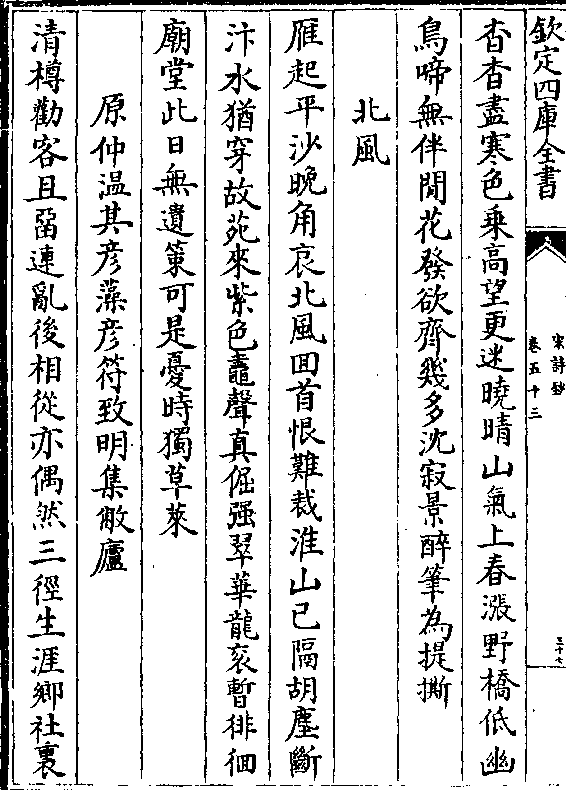 欽定四庫全書
宋詩鈔
卷五十三
三十七
杳杳盡寒色乗高望更迷曉晴山氣上春漲野橋低幽
鳥啼無伴閒花發欲齊幾多沈寂景醉筆為提撕
北風
雁起平沙晚角哀北風囬首恨難裁淮山已隔胡塵斷
汴水猶穿故苑來紫色鼃聲真倔强翠華龍衮暫徘徊
廟堂此日無遺策可是憂時獨草萊
原仲温其彦藻彦符致明集敝廬
清樽勸客且留連亂後相從亦偶然三徑生涯鄉社裏